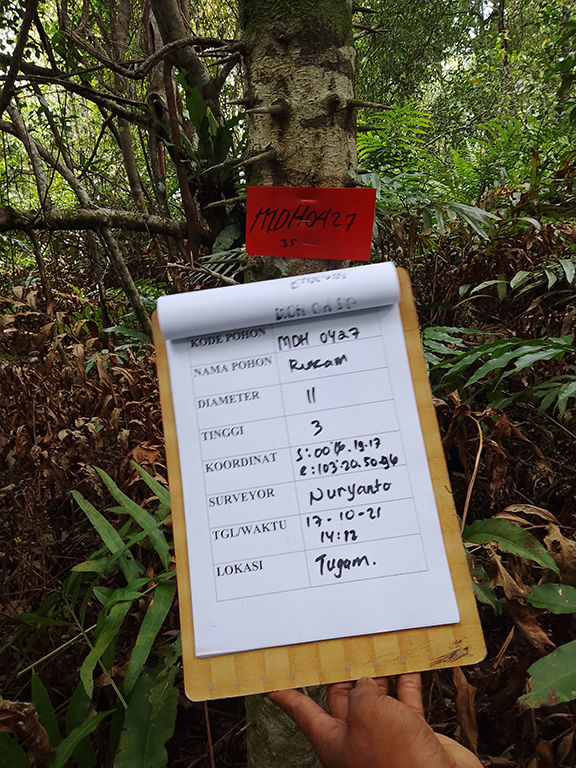 MDH0427
35
KODE POHON MDH 0427
NAMA POHON Rukam
DIAMETER 11
TINGGI 3
KOORDINAT
e: 103°20.50.96
SURVEYOR Nuryanto
TGL/WAKTU 17-10-21
14:12
LOKASI Tugam.